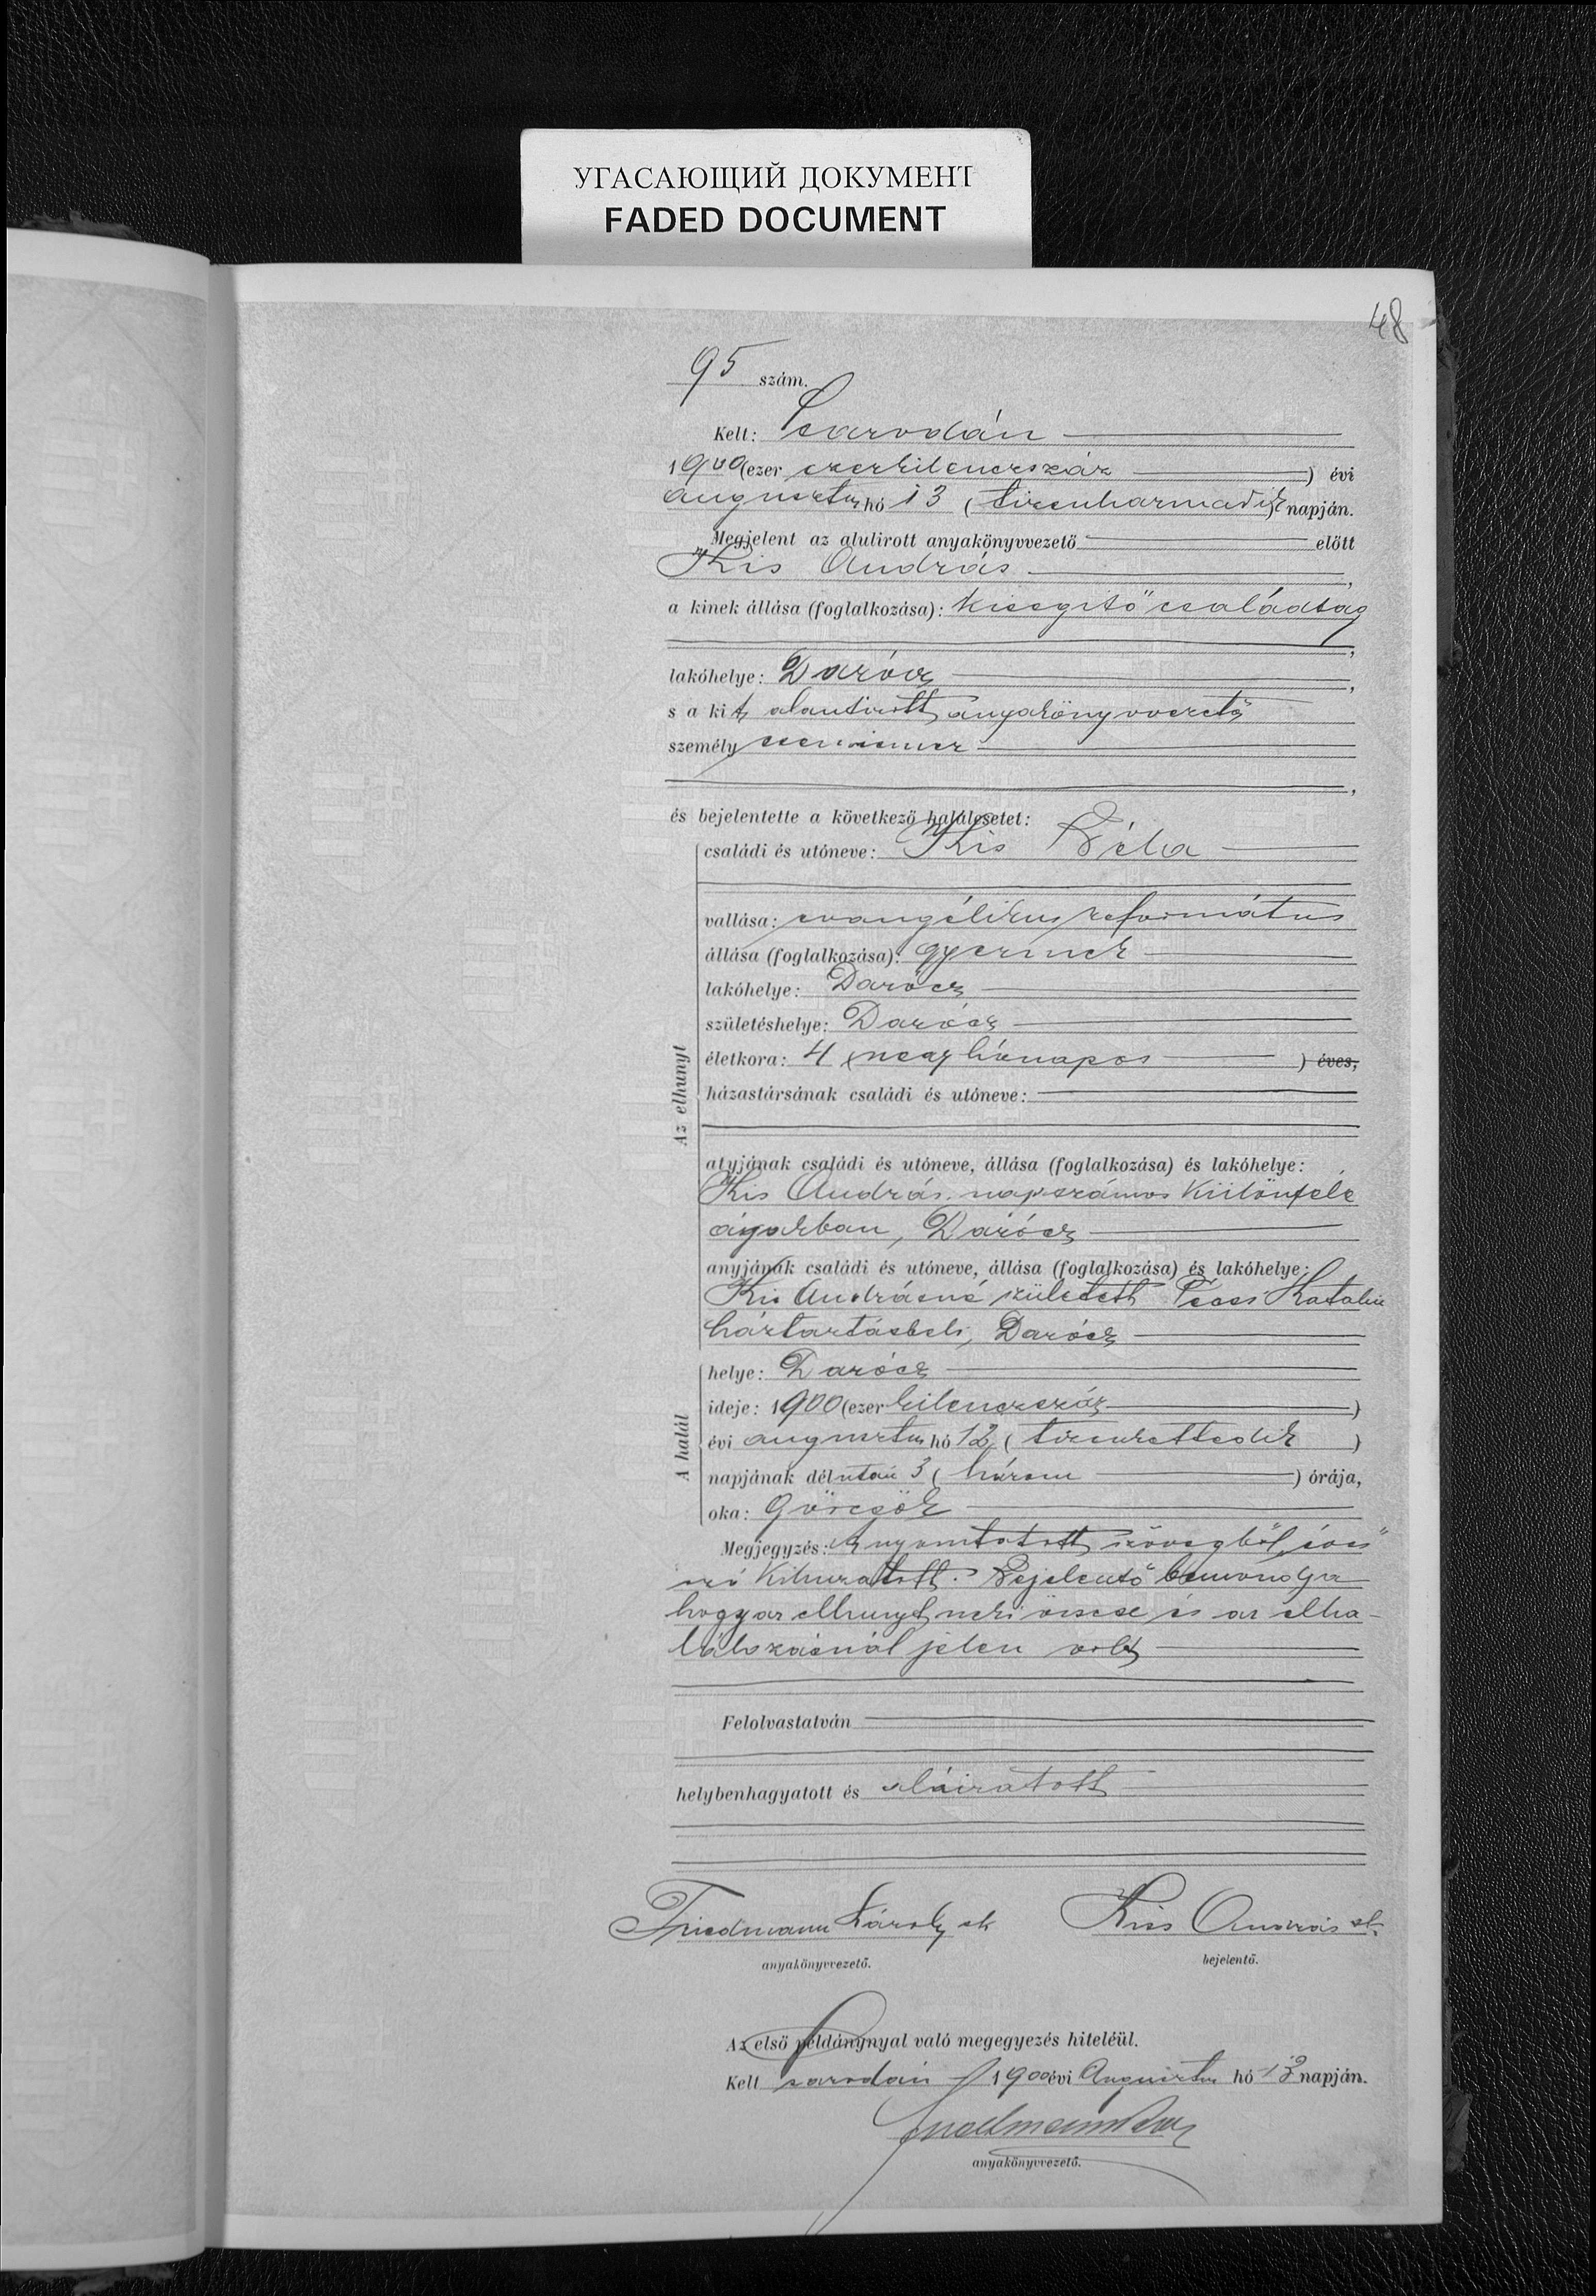 УГАСАЮЩИЙ ДОКУМЕНТ
FADED DOCUMENT
48
95 szám.
Kelt: Csarodán
1900 (ezer ezerkilenczszáz ) évi
augusztus hó 13 (tizenharmadik) napján.
Megjelent az alulirott anyakönyvvezető előtt
Kis András
a kinek állása (foglalkozása): kisegitő családtag
lakóhelye: Darócz
s a kit alantirott anyakönyvvezető
személyesen ismer
és bejelentette a következő halálesetet:
családi és utóneve: Kis Béla
Az elhunyt
vallása: evangélikus református
állása (foglalkozása): gyermek
lakóhelye: Darócz
születéshelye: Darócz
életkora: 4 (négy hónapos ) éves,
házastársának családi és utóneve:
atyjának családi és utóneve, állása (foglalkozása) és lakóhelye:
Kis András napszámos különféle
ágakban, Darócz
anyjának családi és utóneve, állása (foglalkozása) és lakóhelye:
Kis Andrásné született Pécsi Katalin
háztartásbeli, Darócz
A halál
helye: Darócz
ideje: 1900 (ezer kilenczszáz )
évi augusztus hó 12 (tizenkettedik )
napjának délután 3 (három ) órája,
oka: Görcsök
Megjegyzés: A nyomtatott szövegből „éves”
szó kihuzatott. Bejelentő bemondja
hogy az elhunyt neki öccse és az elha-
lálozásnál jelen volt
Felolvastatván
helybenhagyatott és aláiratott
Friedmann Károly sk
Kiss András sk.
anyakönyvvezető.
bejelentő.
Az első példánynyal való megegyezés hiteléül.
Kelt Csarodán 1900 évi Augusztus hó 13 napján.
anyakönyvvezető.